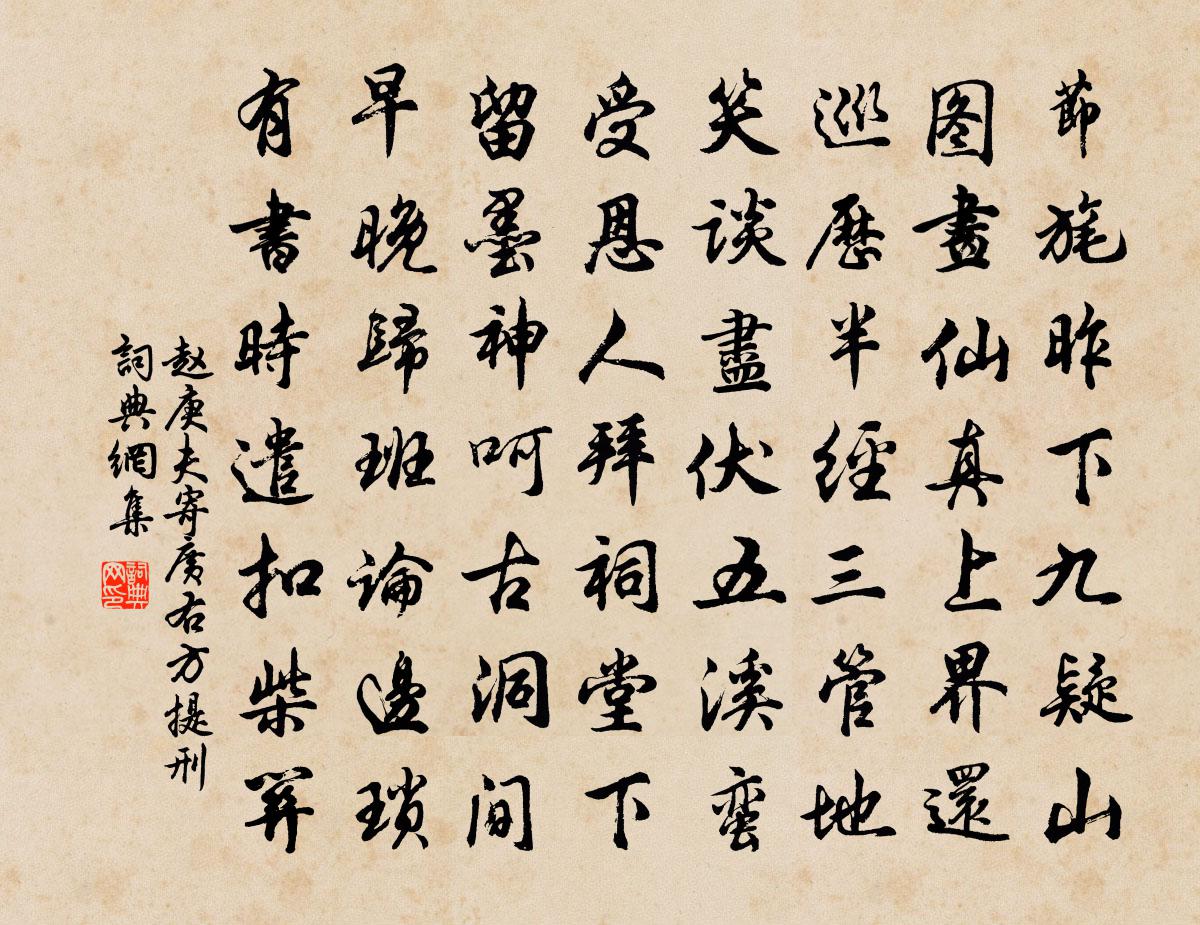 節旄昨下九疑山
图畫仙真上界還
巡歷半經三管地
笑谈盡伏五溪蛮
受恩人拜祠堂下
留墨神呵古洞間
早晚歸班論邊瑣
有書時遣扣柴關
赵庚夫寄廣右方提刑
詞典網集
詞典网印